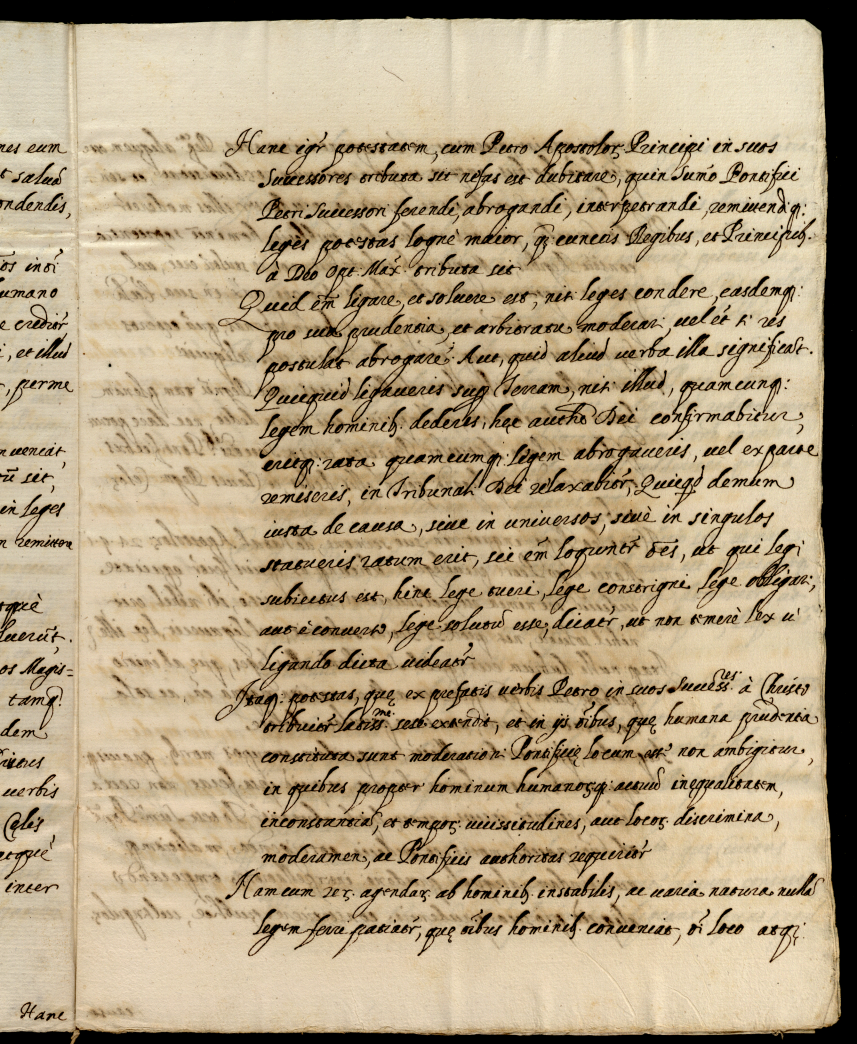 nes eum
t salud
ondendis,
umano
e credit̃r
i, et illud
perme
nveniat,
tũ sit,
in leges
n remittere
tquè
luerũt.
os Magis=
tamq̃.
dem
uerbis
Cælis
atquè
inter
Hanc
Hanc igr̃ potestatem, cum Petro Apostolor̨. Principi in suos
Successores tributa sit nefas est dubitare, quin Sum̃o Pontifici
Petri Successori ferendi, abrogandi, interpetrandi, remittendiq̨:
leges potestas longè maior, q̃ cunctis Regibus, et Principib̨.
à Deo Opt. Max. tributa sit
Quid em̃ ligare, et soluere est, nisi leges condere, easdemq̨:
pro sua prudentia, et arbitratu moderari, uel et̃ si res
postulat abrogare: Aut, quid aliud uerba illa significat.
Quicquid ligaveris sup̱ Terram, nisi illud, quamcunq̨:
legem hominib̨. dederis, hęc autho Dei confirmabitur,
eritq̨: rata quamcumq̨: legem abrogaveris, uel ex parte
remiseris, in Tribunali Dei relaxabit̃r, Quicq̱d demum
iusta de causa, sive in universos, sivè in singulos
statueris ratum erit, sic em̃ loqunt̃r õẽs, ut qui legi
subiectus est, hinc lege tueri, lege constrigni, lege obligari,
aut è converso, lege solutũ esse, dicat̃r, ut non temerè lex à
ligando dicta uideat̃r
Itaq̨: potestas, quę ex prefatis uerbis Petro in suos Successres. à Christo
tribuit̃r latiss.me sese extendit, et in ijs õibus, quę humana prudentia
constituta sunt moderationi Pontificię locum est non ambigitur,
in quibus propter hominum humanor̨q̨: actuũ inęqualitatem,
inconstantiã, et tempor̨. uicissitudines, aut locor̨. discrimina,
moderamen, ac Pontificis authoritas requirit̃r
Nam cum rer̨. agendar̨. ab hominib̨. instabiles, ac uaria natura nullã
legem ferre patiat̃r, quę õibus hominib̨. conveniat, õi loco atq̨: